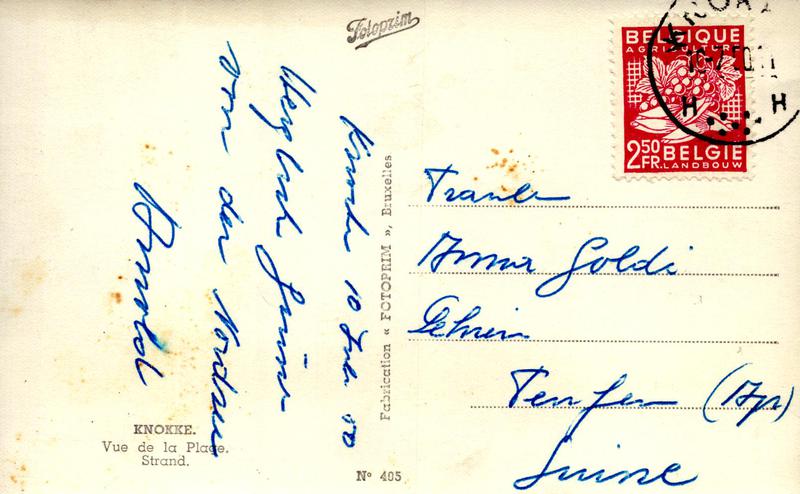 Fotoprim
Knocke 10 Juli 50
Herzlich Grüsse
von der Nordsee
Arnold
KNOKKE.
Vue de la Plage.
Strand.
Nº 405
Fabrication « FOTOPRIM », Bruxelles
BELGIQUE
AGRICULTURE
2.50 FR. BELGIE
LANDBOUW
KNOKK
H H
Anna Goldi
Teufen (Apr)
Suisse